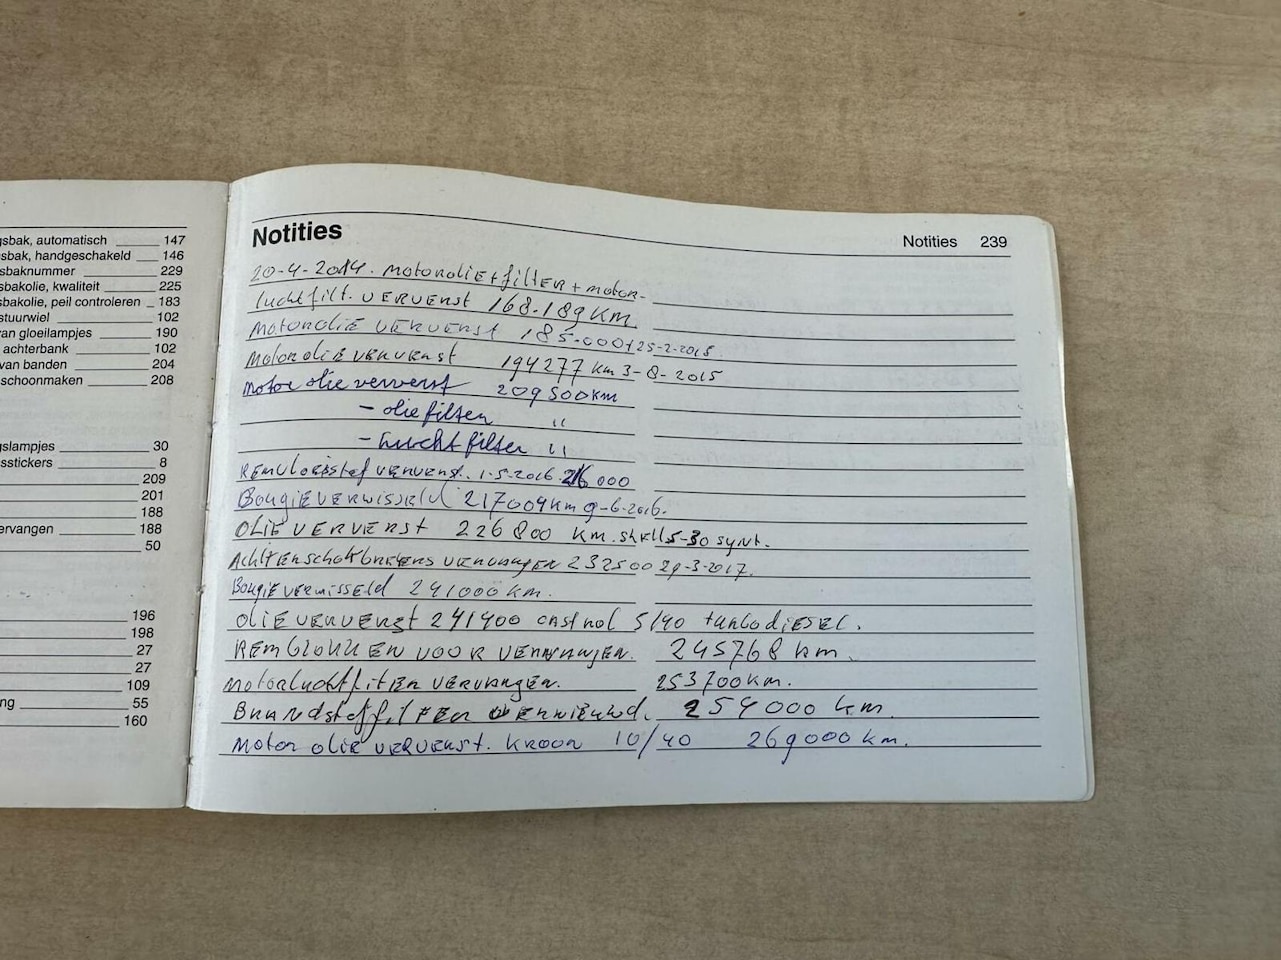 gsbak, automatisch 147
gsbak, handgeschakeld 146
sbaknummer 229
sbakolie, kwaliteit 225
sbakolie, peil controleren 183
stuurwiel 102
van gloeilampjes 190
achterbank 102
van banden 204
schoonmaken 208
gslampjes 30
sstickers 8
209
201
188
ervangen 188
50
196
198
27
27
109
ng 55
160
Notities
Notities 239
20-4-2014. motorolie + filter + motor-
luchtfilt. ververst 168.189 km
motorolie ververst 185.000 25-2-2015
motorolie ververst 194277 km 3-8-2015
motor olie ververst 209500km
- olie filter "
- lucht filter "
Remvloeistof ververst. 1-5-2016 216000
Bougie verwisseld 217004km 9-6-2016.
olie ververst 226800 km. shell 5-30 synt.
Achterschokbrekers vervangen 232500 29-3-2017.
Bougie verwisseld 241000 km.
olie ververst 241400 castrol 5/40 turbodiesel.
Remblokken voor vervangen. 245768 km.
motorluchtfilter vervangen. 253700km.
Brandstoffilter vernieuwd. 254000 km.
motor olie ververst. Kroon 10/40 269000 km.